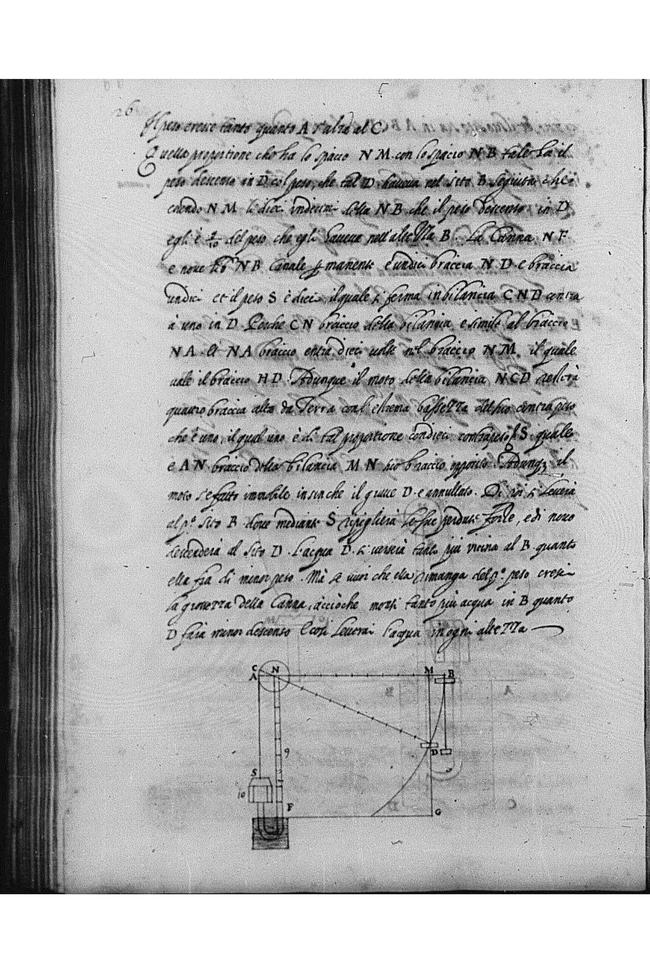 26
Il peso cresce tanto quanto A s'alza al C.
Quella proportione che ha lo spacio N M. con lo spacio N B tale ha il
peso descenso in D col peso, che tal D. haveva nel sito B. seguita che
essendo N M. li dieci undecimi della N B che il peso descenso in D
egli è 9/10 del peso che egli haveva nell'altezza B. La Canna N F
e nove N B Canale è undici braccia N D. e braccia
undici et il peso S è dieci, il quale si ferma in bilancia C N D contra
à uno in D. Perche C N braccio della bilancia, e simile al braccio
N A. et N A braccio entra dieci volte nel braccio N M, il quale
vale il braccio H D. Adunque il moto della bilancia. N C D
quattro braccia alto da Terra con l'estrema bassezza del suo contrapeso
che è uno, il qual uno è di tal proportione con dieci contrapeso S. quale
è A N braccio della bilancia M N suo braccio opposito. Adunq; il
moto s'è fatto invisibile insin che il grave D. e annullato. Di poi si leverà
al p.º sito B dove mediante S ripiglierà le sue perdute forze, e di novo
descenderà al sito D. L'acqua D. si verserà tanto più vicina al B quanto
ella sia di minor peso. Mà se vuoi che ella rimanga del p.º peso cresci
la grossezza della Canna, acciòche morsi tanto più acqua in B quanto
D farà minor descenso E così leverai l'acqua in ogni altezza
C
A
N
M
B
D
9
S
10
F
G